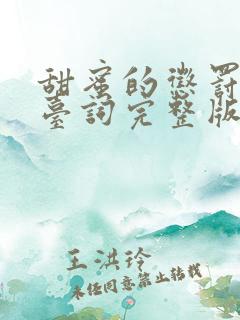 甜蜜的懲罰
臺詞完整版
王洪玲
未经同意禁止转载